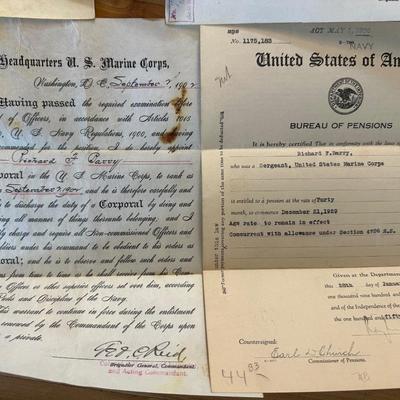 Headquarters U. S. Marine Corps,
Washington, D. C. September 7, 190
Having passed the required examination before
of Officers, in accordance with Articles 1015
U. S. Navy Regulations, 1900, and having
commended for the position, I do hereby appoint
Richard F
Corporal in the U. S. Marine Corps, to rank as
September and he is therefore carefully and
to discharge the duty of a Corporal by doing and
ing all manner of things thereunto belonging, and I
ly charge and require all Non-commissioned Officers and
diers under his command to be obedient to his orders as
poral; and he is to observe and follow such orders and
ns from time to time as he shall receive from his Com-
Officer or other superior officers set over him, according
Rules and Discipline of the Navy.
This warrant to continue in force during the enlistment
removed by the Commandant of the Corps upon
a private.
Geo. C. Reid
Brigadier General, Commandant
and Acting Commandant.
mpe ACT MAY 1, 1920
No. 1175,183
NAVY
United States of Am
BUREAU OF PENSIONS
It is hereby certified That in conformity with the laws of
Richard F. Barry,
who was a Sergeant, United States Marine Corps
is entitled to a pension at the rate of Forty
month, to commence December 21, 1929
Age rate to remain in effect
Concurrent with allowance under Section 4756 R.S.
Given at the Department
this 28th day of January
one thousand nine hundred and
and of the Independence of the
the one hundred and fifty
Countersigned:
Earl D. Church
Commissioner of Pensions.
44 83